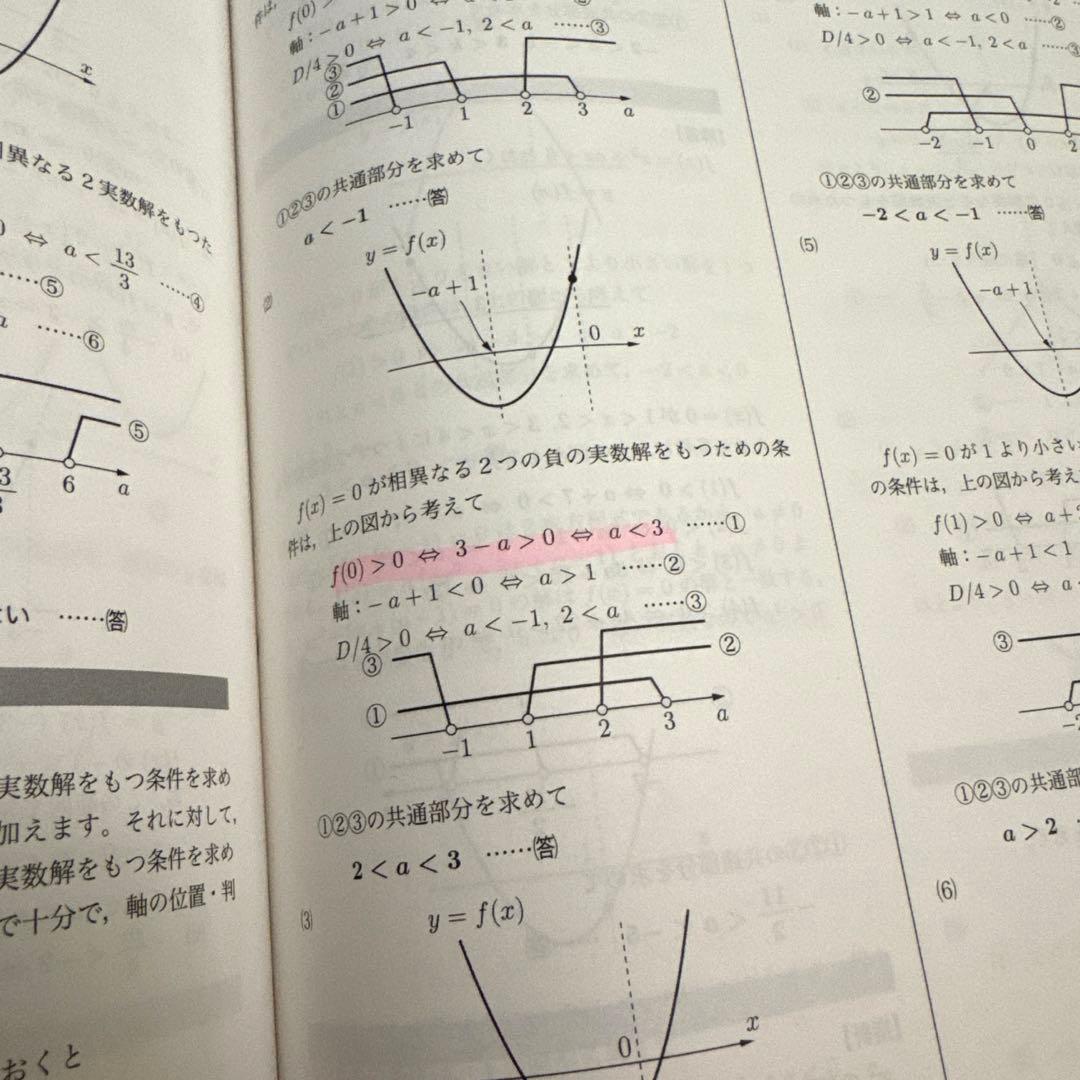 x
相異なる2実数解をもつた
⇔ a < 13/3 ……④
……⑤
a ……⑥
⑤
6 a
……㊎
実数解をもつ条件を求め
加えます。それに対して,
実数解をもつ条件を求め
で十分で, 軸の位置・判
おくと
件は,
f(0) >
軸：−a+1>0 ⇔
D/4>0 ⇔ a<−1, 2<a ……③
③
②
①
−1 1 2 3 a
①②③の共通部分を求めて
a<−1 ……(答)
(2)
y=f(x)
−a+1
0 x
f(x)=0が相異なる2つの負の実数解をもつための条
件は, 上の図から考えて
f(0)>0 ⇔ 3−a>0 ⇔ a<3 ……①
軸：−a+1<0 ⇔ a>1 ……②
D/4>0 ⇔ a<−1, 2<a ……③
③
②
①
−1 1 2 3 a
①②③の共通部分を求めて
2<a<3 ……(答)
(3)
y=f(x)
0 x
軸：−a+1>1 ⇔ a<0 ……②
D/4>0 ⇔ a<−1, 2<a ……③
②
−2 −1 0 2
①②③の共通部分を求めて
−2<a<−1 ……(答)
(5)
y=f(x)
−a+1
f(x)=0が1より小さい
の条件は, 上の図から考え
f(1)>0 ⇔ a+
軸：−a+1<1
D/4>0 ⇔ a
③
①②③の共通部分
a>2
(6)